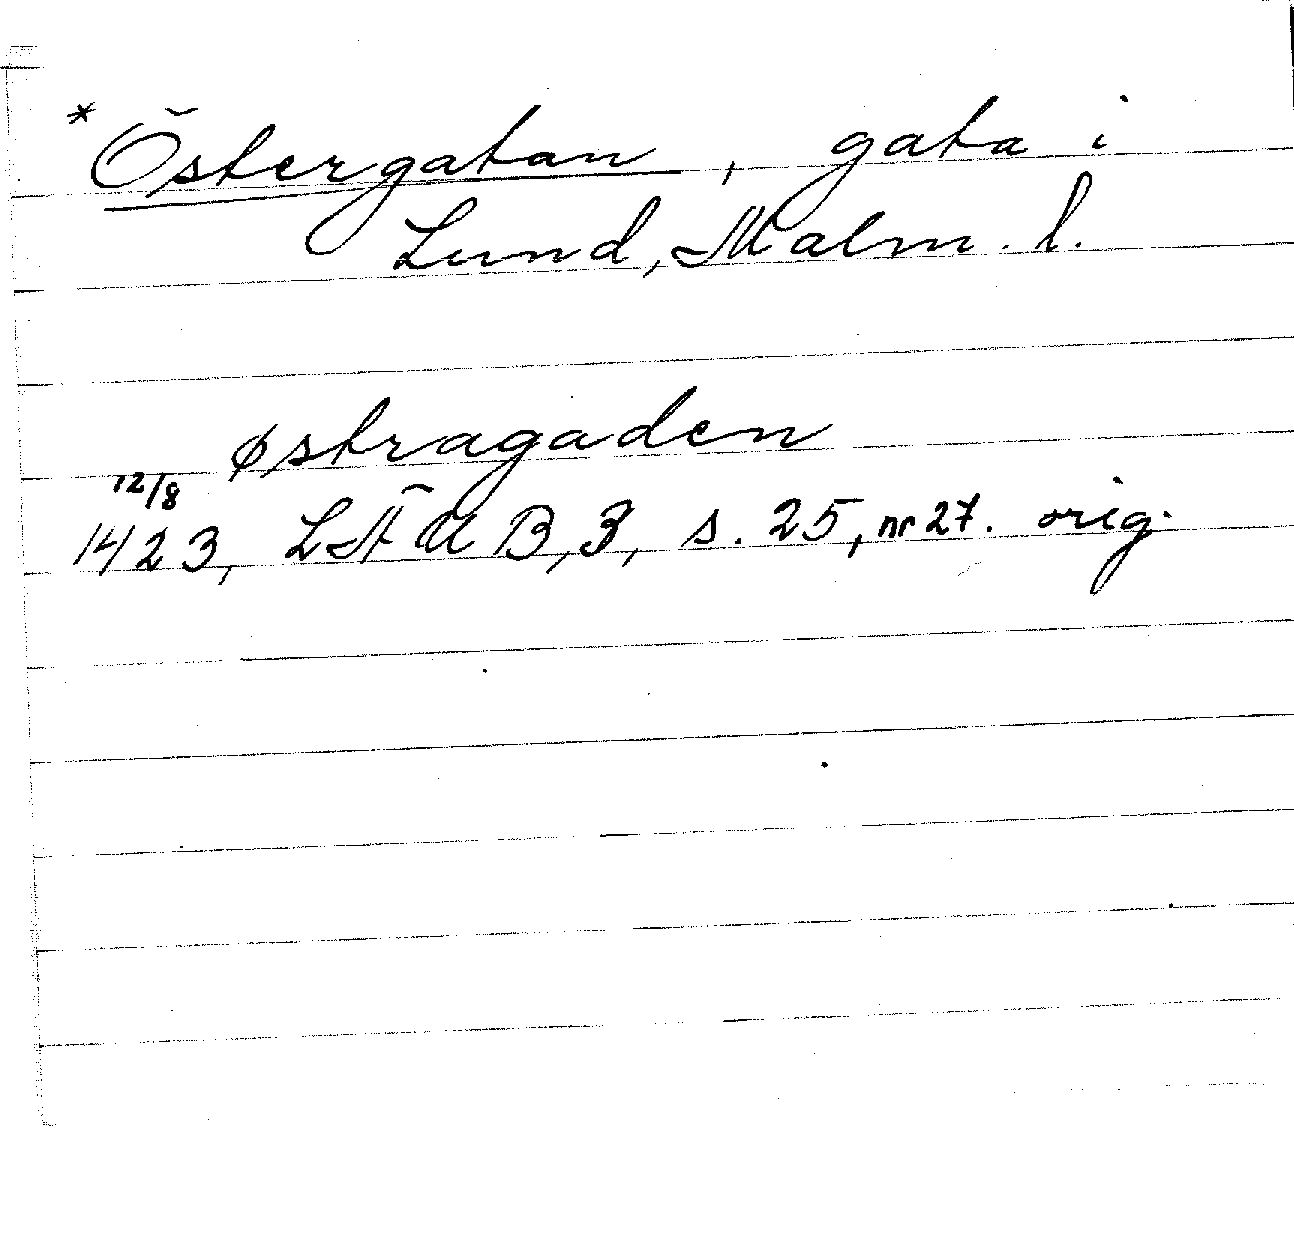 * Östergatan, gata i
Lund, Malm. l.
østragaden
12/8
1423, LÄUB, 3, s. 25, nr 27. orig.